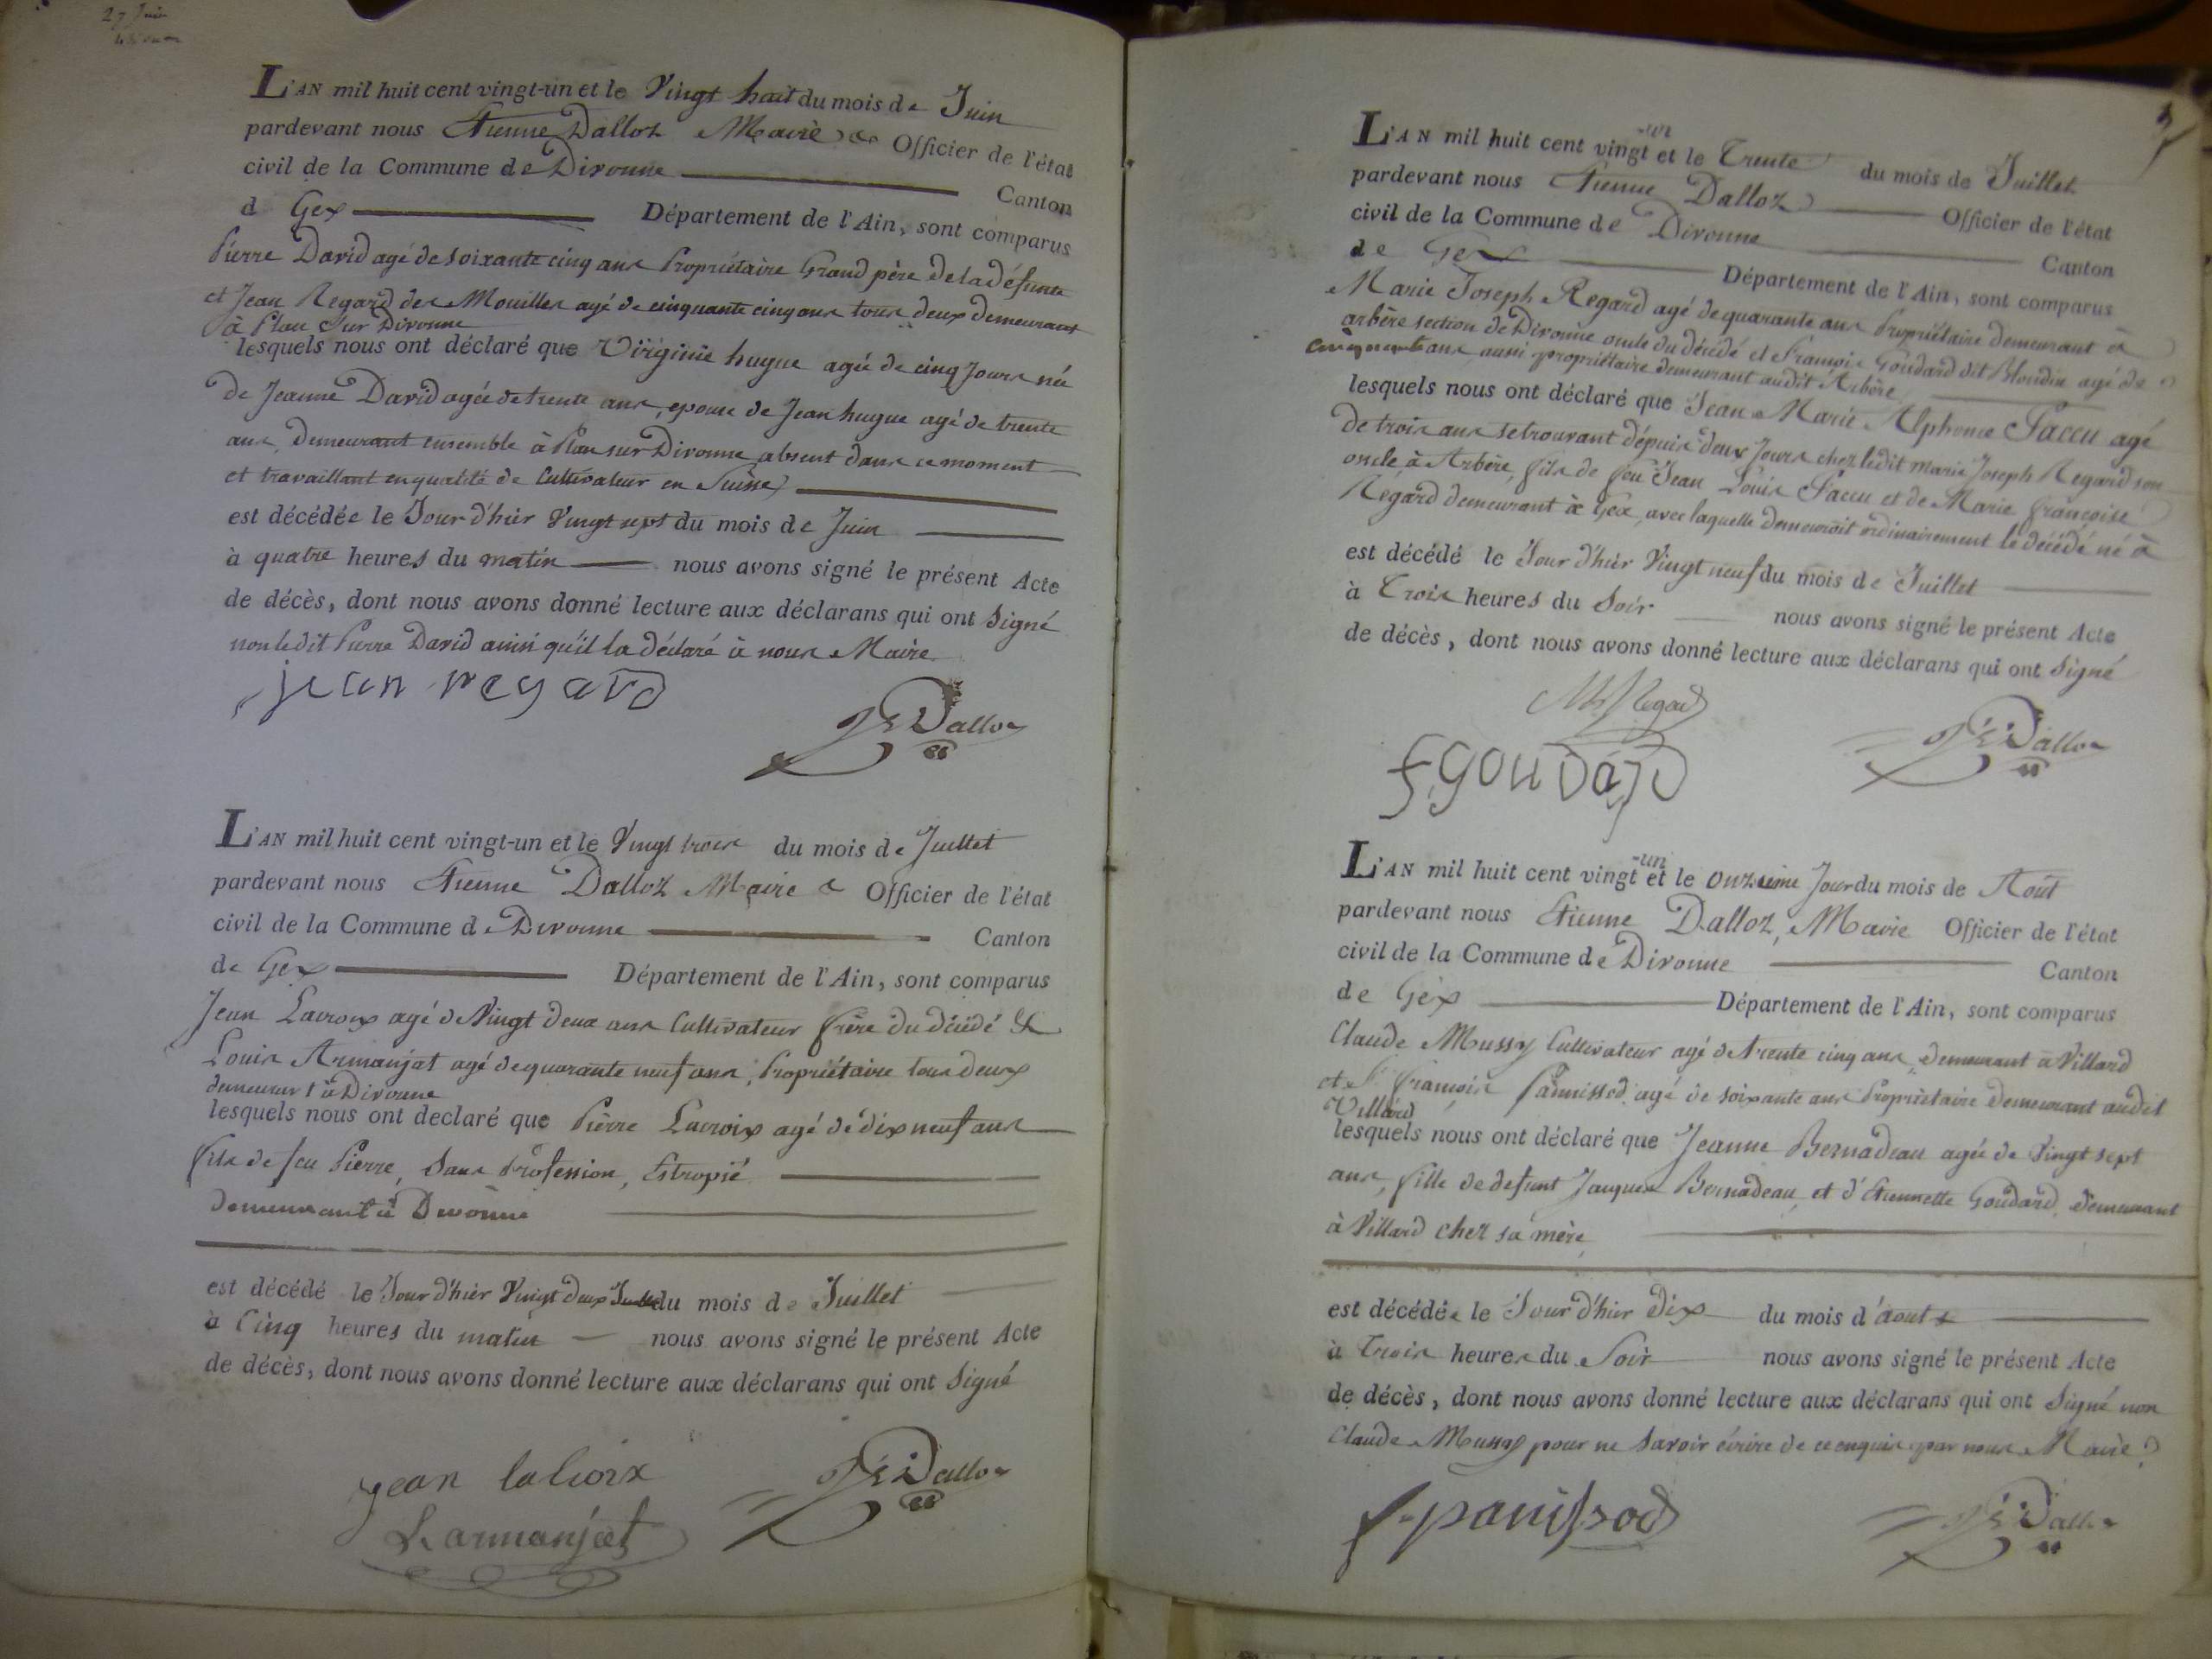 27 Juin
L'AN mil huit cent vingt-un et le Vingt huit du mois de Juin
pardevant nous Etienne Dalloz Maire Officier de l'état
civil de la Commune de Divonne Canton
d Gex Département de l'Ain, sont comparus
Pierre David agé de soixante cinq ans Propriétaire Grand père de la défunte
et Jean Regard des Mouilles agé de cinquante cinq ans tous deux demeurant
à Plan sur Divonne
lesquels nous ont déclaré que Virginie hugue agée de cinq Jours née
de Jeanne David agée de trente ans, epouse de Jean hugue agé de trente
ans, demeurant ensemble à Plan sur Divonne, absent dans ce moment
et travaillant en qualité de Cultivateur en Suisse
est décédée le Jour d'hier Vingt sept du mois de Juin
à quatre heures du matin nous avons signé le présent Acte
de décès, dont nous avons donné lecture aux déclarans qui ont Signé
non ledit Pierre David ainsi qu'il la déclaré à nous Maire
jean regard
Dalloz
L'AN mil huit cent vingt-un et le Vingt trois du mois de Juillet
pardevant nous Etienne Dalloz Maire Officier de l'état
civil de la Commune de Divonne Canton
de Gex Département de l'Ain, sont comparus
Jean Lacroix agé de Vingt deux ans Cultivateur frère du décédé &
Louis Armanjat agé de quarante neuf ans, Propriétaire tous deux
demeurant à Divonne
lesquels nous ont declaré que Pierre Lacroix agé de dix neuf ans
fils de feu Pierre, Sans Profession, Estropié
demeurant à Divonne
est décédé le Jour d'hier Vingt deux du mois de Juillet
à Cinq heures du matin nous avons signé le présent Acte
de décès, dont nous avons donné lecture aux déclarans qui ont Signé
jean lacroix
L armanjat
Dalloz
L'AN mil huit cent vingt -un et le Trente du mois de Juillet
pardevant nous Etienne Dalloz Officier de l'état
civil de la Commune de Divonne Canton
de Gex Département de l'Ain, sont comparus
Marie Joseph Regard agé de quarante ans Propriétaire demeurant à
arbère section de Divonne oncle du décédé et François Goudard dit Blondin agé de
cinquante ans, aussi propriétaire demeurant audit Arbère
lesquels nous ont déclaré que Jean Marie Alphonse Paccu agé
de trois ans se trouvant dépuis deux Jours chez ledit marie Joseph Regard son
oncle à Arbère, fils de feu Jean Louis Paccu et de Marie françoise
Regard demeurant à Gex, avec laquelle demeuroit ordinairement le décédé né à
est décédé le Jour d'hier Vingt neuf du mois de Juillet
à Trois heures du Soir nous avons signé le présent Acte
de décès, dont nous avons donné lecture aux déclarans qui ont Signé
Regard
f goudard
Dalloz
L'AN mil huit cent vingt -un et le onzieme Jour du mois de Août
pardevant nous Etienne Dalloz, Maire Officier de l'état
civil de la Commune de Divonne Canton
de Gex Département de l'Ain, sont comparus
Claude Mussy Cultivateur agé de trente cinq ans demeurant à Villard
et Sr françois Pannissod agé de soixante ans Propriétaire demeurant audit
Villard
lesquels nous ont déclaré que Jeanne Bernadeau agée de Vingt sept
ans, fille de defunt Jaques Bernadeau, et d'Etiennette Goudard, demeurant
à Villard chez sa mère
est décédée le Jour d'hier Dix du mois d'août
à Trois heures du Soir nous avons signé le présent Acte
de décès, dont nous avons donné lecture aux déclarans qui ont Signé non
Claude Mussy pour ne Savoir écrire de ce enquis par nous Maire
f. panissod
Dalloz